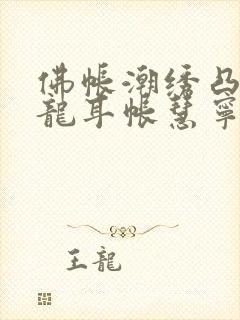 佛帳潮绣凸
龍耳帳慧寧
王龍